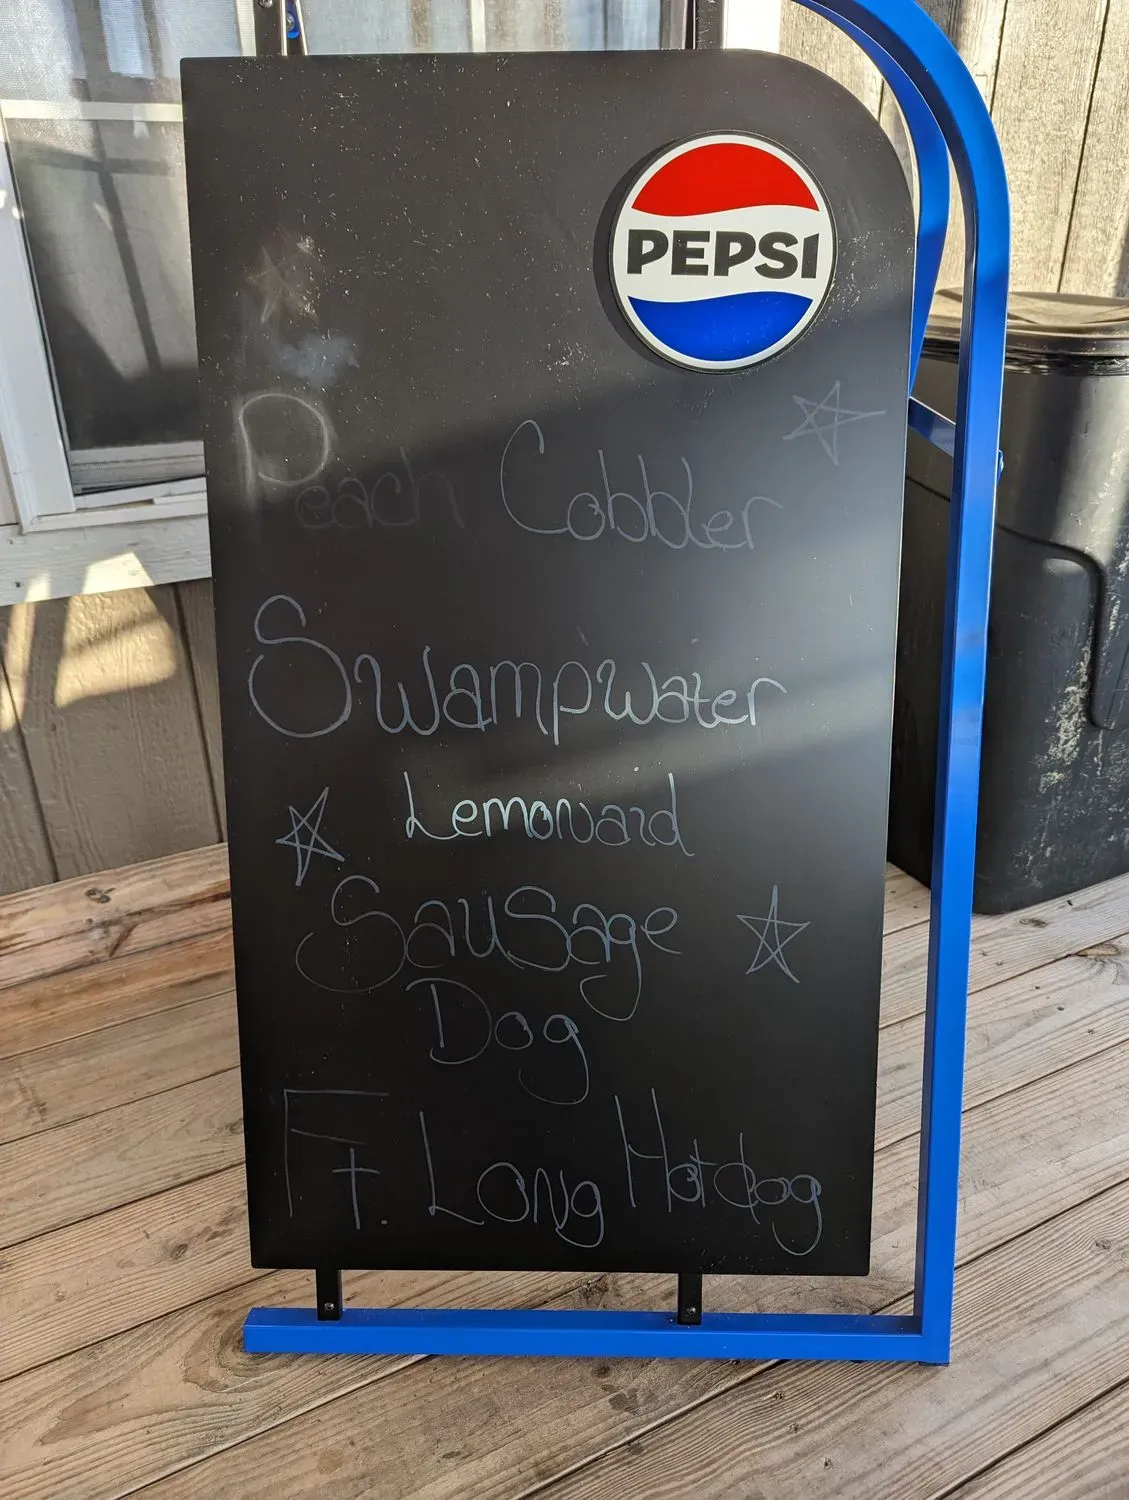 PEPSI
Peach Cobbler
Swampwater
Lemonaid
Sausage
Dog
Ft. Long Hotdog